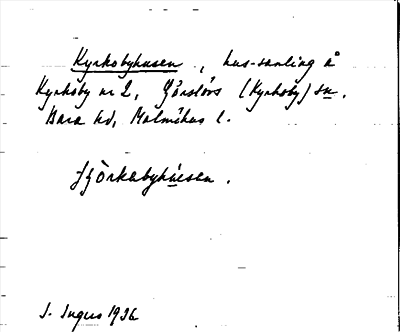 Kyrkobyhusen, hus-samling å
Kyrkoby nr 2, Görslövs (Kyrkoby) sn.
Bara hd, Malmöhus l.
J. Ingers 1936